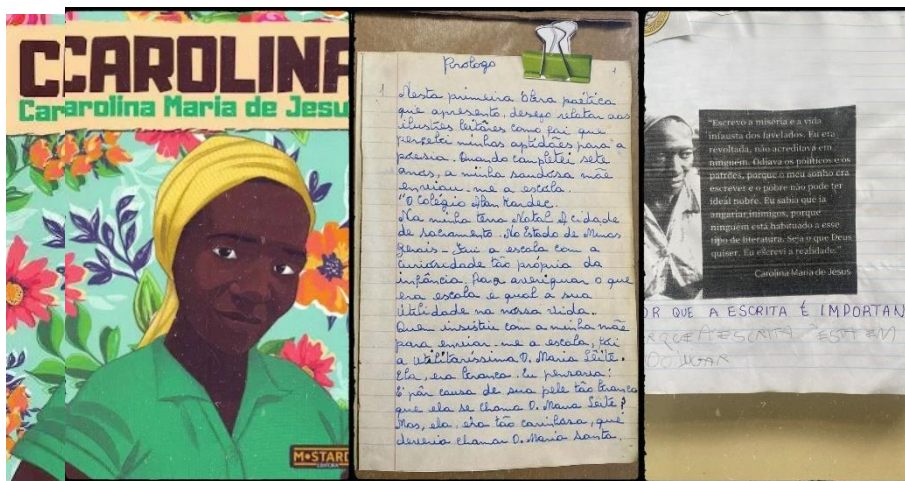 CCAROLINA
Cararolina Maria de Jesu
M•STARD
EDITORA
Prologo
1
1 Nesta primeira Obra poética
que apresento, desejo relatar aos
ilustres leitôres como foi que
percebi minhas aptidões para a
poesia. Quando completei sete
anos, a minha saudosa mãe
enviou-me a escola.
"O Colégio Alan Kardec.
Na minha terra Natal A cidade
de sacramento. No Estado de Minas
Gerais - Fui a escola com a
curiosidade tão própria da
infância, Para averiguar o que
era escola e qual a sua
utilidade na nossa vida.
Quem insistiu com a minha mãe
para enviar-me a escola, foi
a utilitaríssima D. Maria Leite.
Ela, era branca. Eu pensava:
É pôr causa de sua pele tão branca
que ela se chama D. Maria Leite?
Mas, ela, era tão carinhosa, que
deveria chamar D. Maria Santa.
"Escrevo a miséria e a vida
infausta dos favelados. Eu era
revoltada, não acreditava em
ninguém. Odiava os políticos e os
patrões, porque o meu sonho era
escrever e o pobre não pode ter
ideal nobre. Eu sabia que ia
angariar inimigos, porque
ninguém está habituado a esse
tipo de literatura. Seja o que Deus
quiser. Eu escrevi a realidade."
Carolina Maria de Jesus
OR QUE A ESCRITA É IMPORTAN
RQUE A ESCRITA ESTA EM